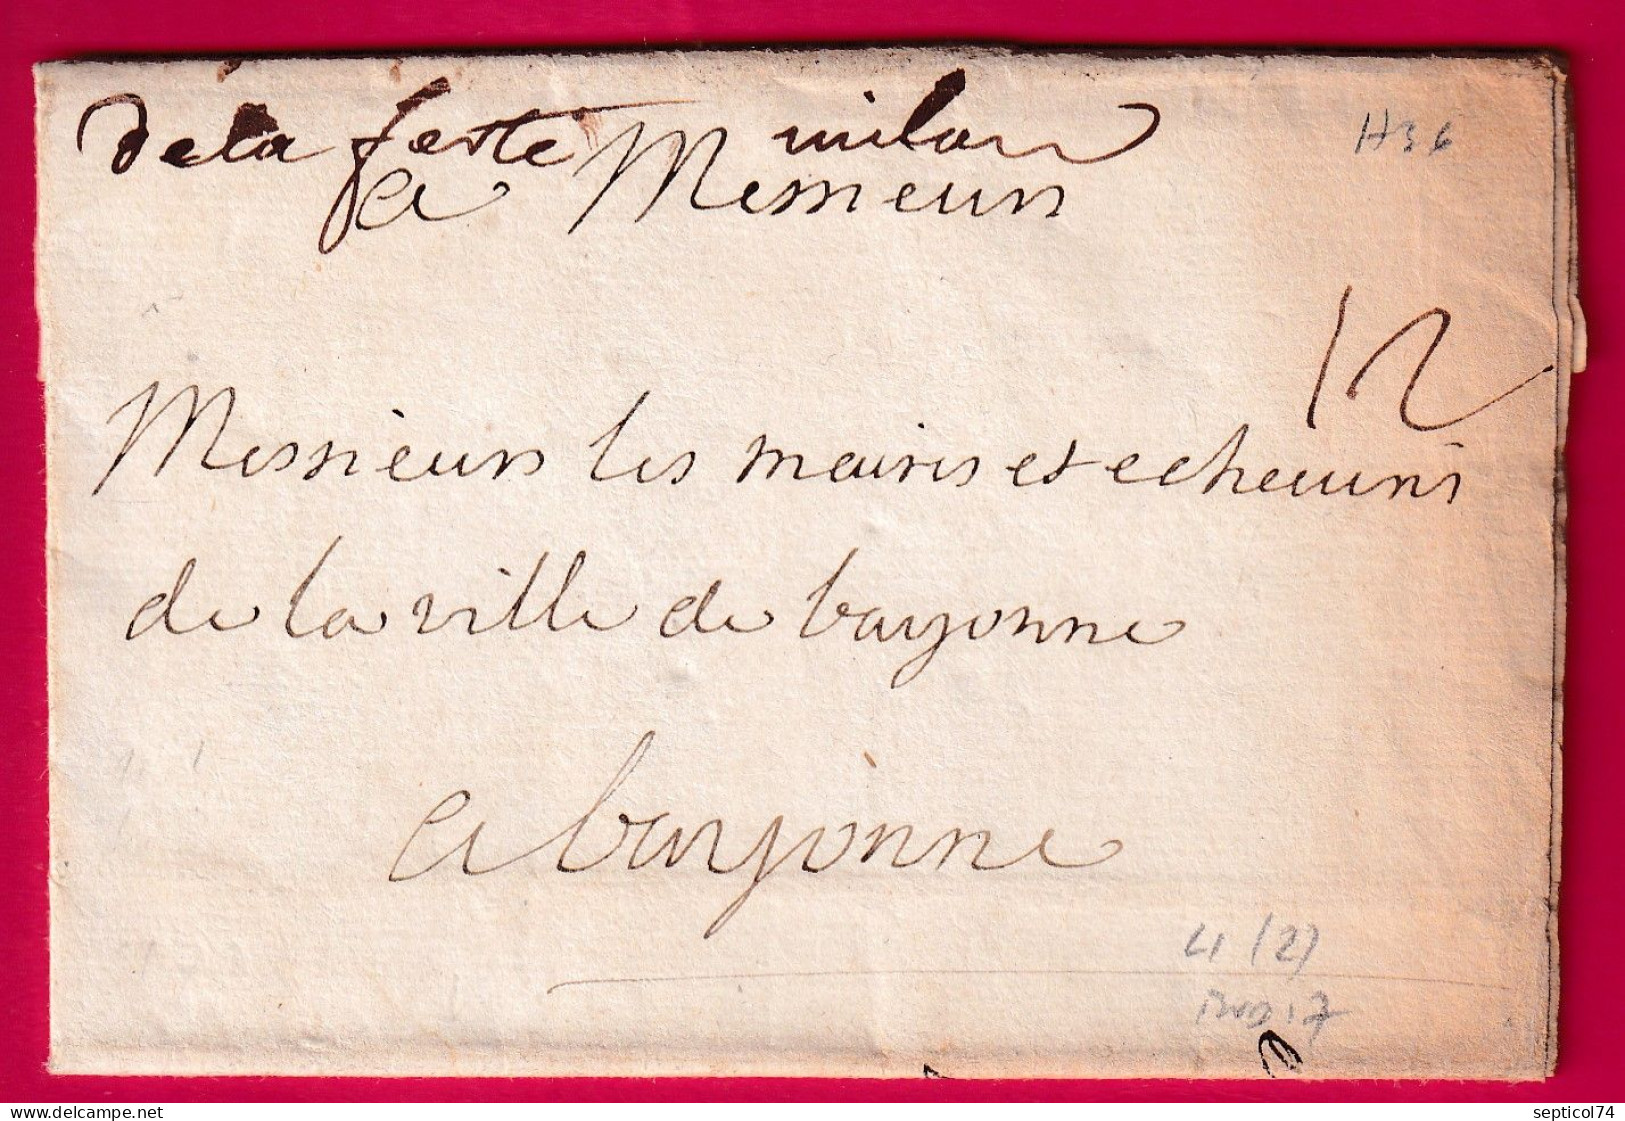 de la ferté milon
H36
a Messieurs
12
Messieurs les maires et echeuins
de la ville de bayonne
a bayonne
L1 (2)
delcampe.net
septicol74